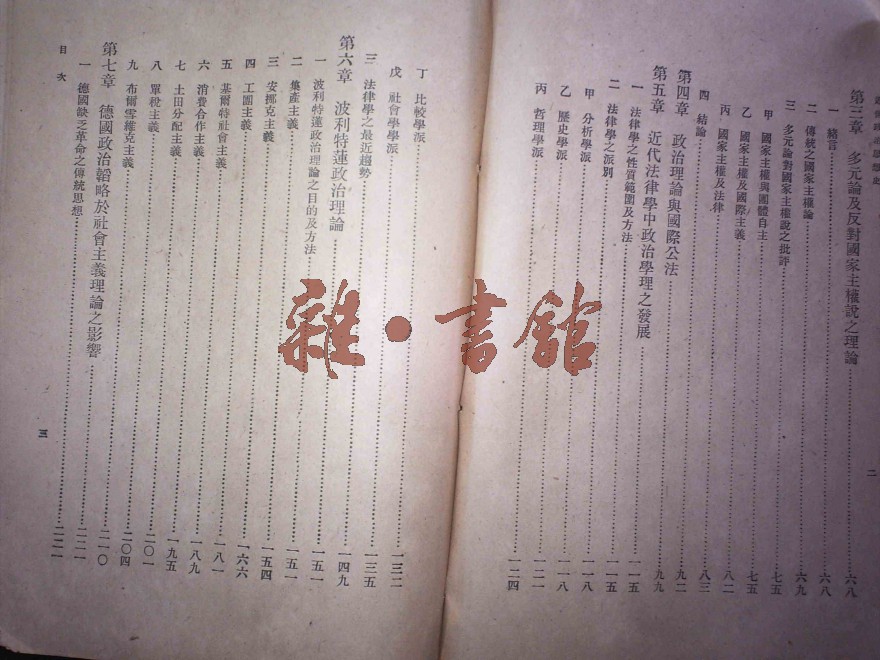 二
第三章 多元論及反對國家主權說之理論……六八
一 緒言……六八
二 傳統之國家主權論……六九
三 多元論對國家主權說之批評……七五
甲 國家主權與團體自主……七五
乙 國家主權及國際主義……八二
丙 國家主權及法律
四 結論……八三
第四章 政治理論與國際公法……九二
第五章 近代法律學中政治學理之發展……九九
一 法律學之性質範圍及方法……一一五
二 法律學之派別……一一五
甲 分析學派……一一八
乙 歷史學派……一一八
丙 哲理學派……一二一
一二四
丁 比較學派……一三二
戊 社會學學派
三 法律學之最近趨勢……一三五
第六章 波利特遞政治理論……一四九
一 波利特遞政治理論之目的及方法……一五一
二 集產主義……一五一
三 安挪克主義……一五四
四 工團主義……一六六
五 基爾特社會主義……一八一
六 消費合作主義……一八九
七 土田分配主義……一九五
八 單稅主義……二〇一
九 布爾雪維克主義……二〇四
第七章 德國政治韜略於社會主義理論之影響……二一〇
一 德國缺乏革命之傳統思想……二二一
目次
三
二二一
雜·書館